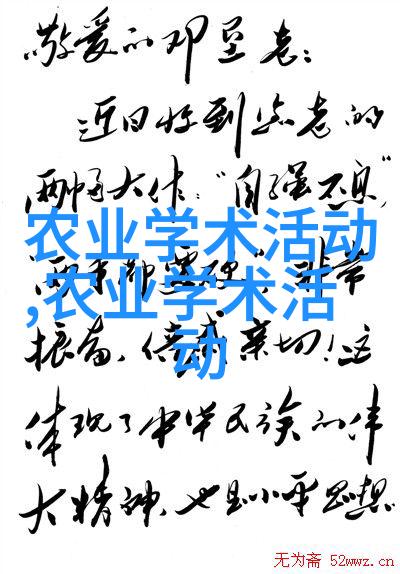 敬爱的邓垦老:
近日收到您老的
两幅大作:"自强不息"
农业学术活动
两手都要硬"非常
,农业学术活
振奋、倍感亲切!这
动
体现了中华民族的伟
大精神,也是小平思想
无为斋 52wwz.cn